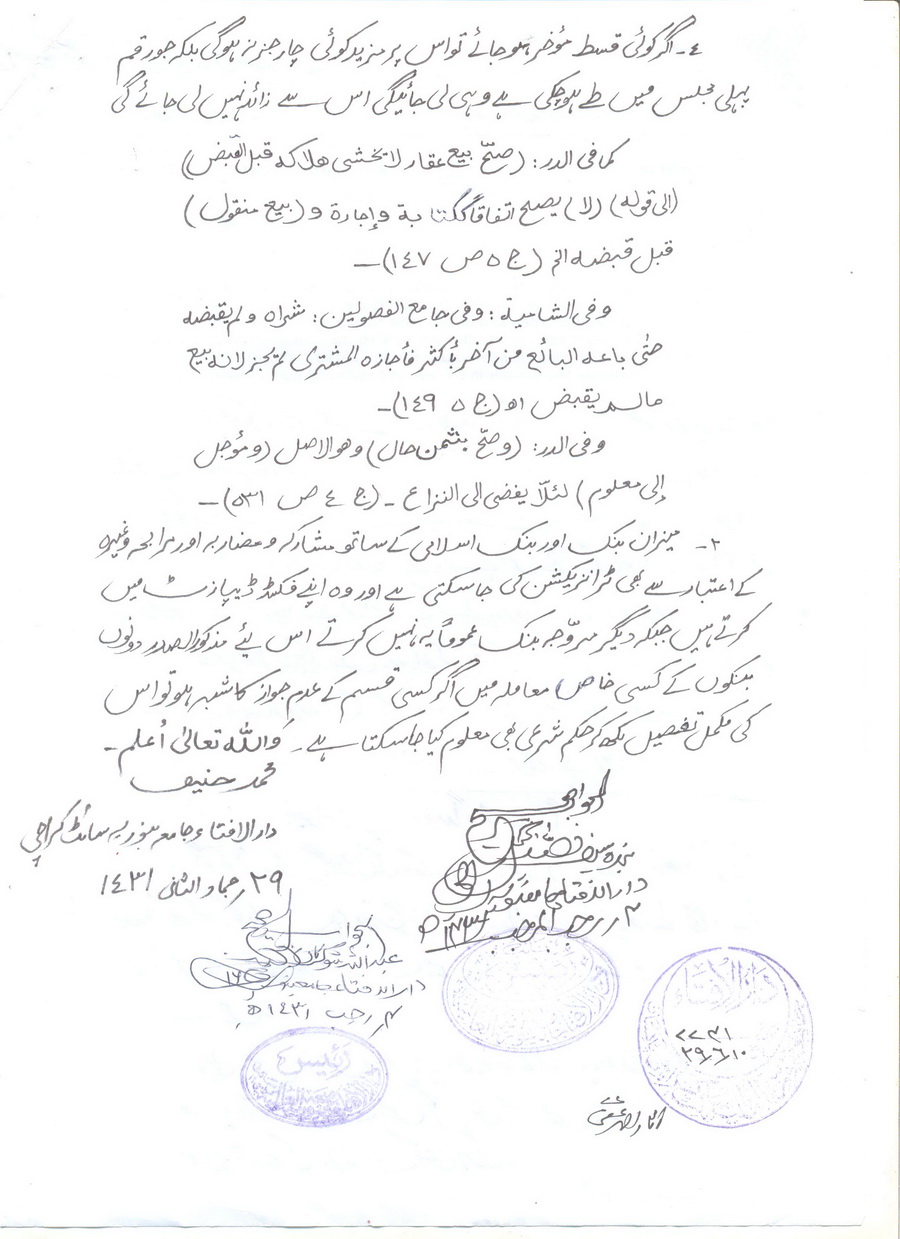 ٤۔ اگر کوئی قسط مؤخر ہو جائے تو اس پر مزید کوئی چارجز نہ ہوگی بلکہ جو رقم
پہلی مجلس میں طے ہو چکی ہے وہی لی جائیگی اس سے زائد نہیں لی جائے گی
کما فی الدر: (صحّ بیع عقار لا یخشی ھلاکہ قبل القبض)
(الی قولہ) (لا) یصح اتفاقاً ککتابة وإجارة و (بیع منقول)
قبل قبضہ الخ (ج ٥ ص ١٤٧)۔
وفی الشامیة: وفی جامع الفصولین: شراہ ولم یقبضہ
حتٰی باعہ البائع من آخر بأکثر فأجازہ المشتری لم یجز لانہ بیع
مالم یقبض اھ (ج ٥ ص ١٤٩)۔
وفی الدر: (وصحّ بثمن حال) وھو الاصل (ومؤجل
إلی معلوم) لئلّا یفضی الی النزاع ۔ (ج ٤ ص ٥٣١)۔
٢۔ میزان بنک اور بنک اسلامی کے ساتھ مشارکہ و مضاربہ اور مرابحہ وغیرہ
کے اعتبار سے بھی ٹرانزیکشن کی جا سکتی ہے اور وہ اپنے فکسڈ ڈیپازٹ میں
کرتے ہیں جبکہ دیگر مروّجہ بنک عموماً یہ نہیں کرتے اس لئے مذکور الصدر دونوں
بنکوں کے کسی خاص معاملہ میں اگر کسی قسم کے عدم جواز کا شبہ ہو تو اس
کی مکمل تفصیل لکھ کر حکم شرعی بھی معلوم کیا جا سکتا ہے۔ واللہ تعالیٰ أعلم۔
محمد حنیف
دار الافتاء جامعہ بنوریہ سائٹ کراچی
٢٩ جماد الثانی ١٤٣١
الجواب صحیح
دار الافتاء جامعہ بنوریہ
دار الافتاء جامعہ بنوریہ
٤ رجب ١٤٣١ھ
رئیس
دار الافتاء
٢٩/٦/١٠